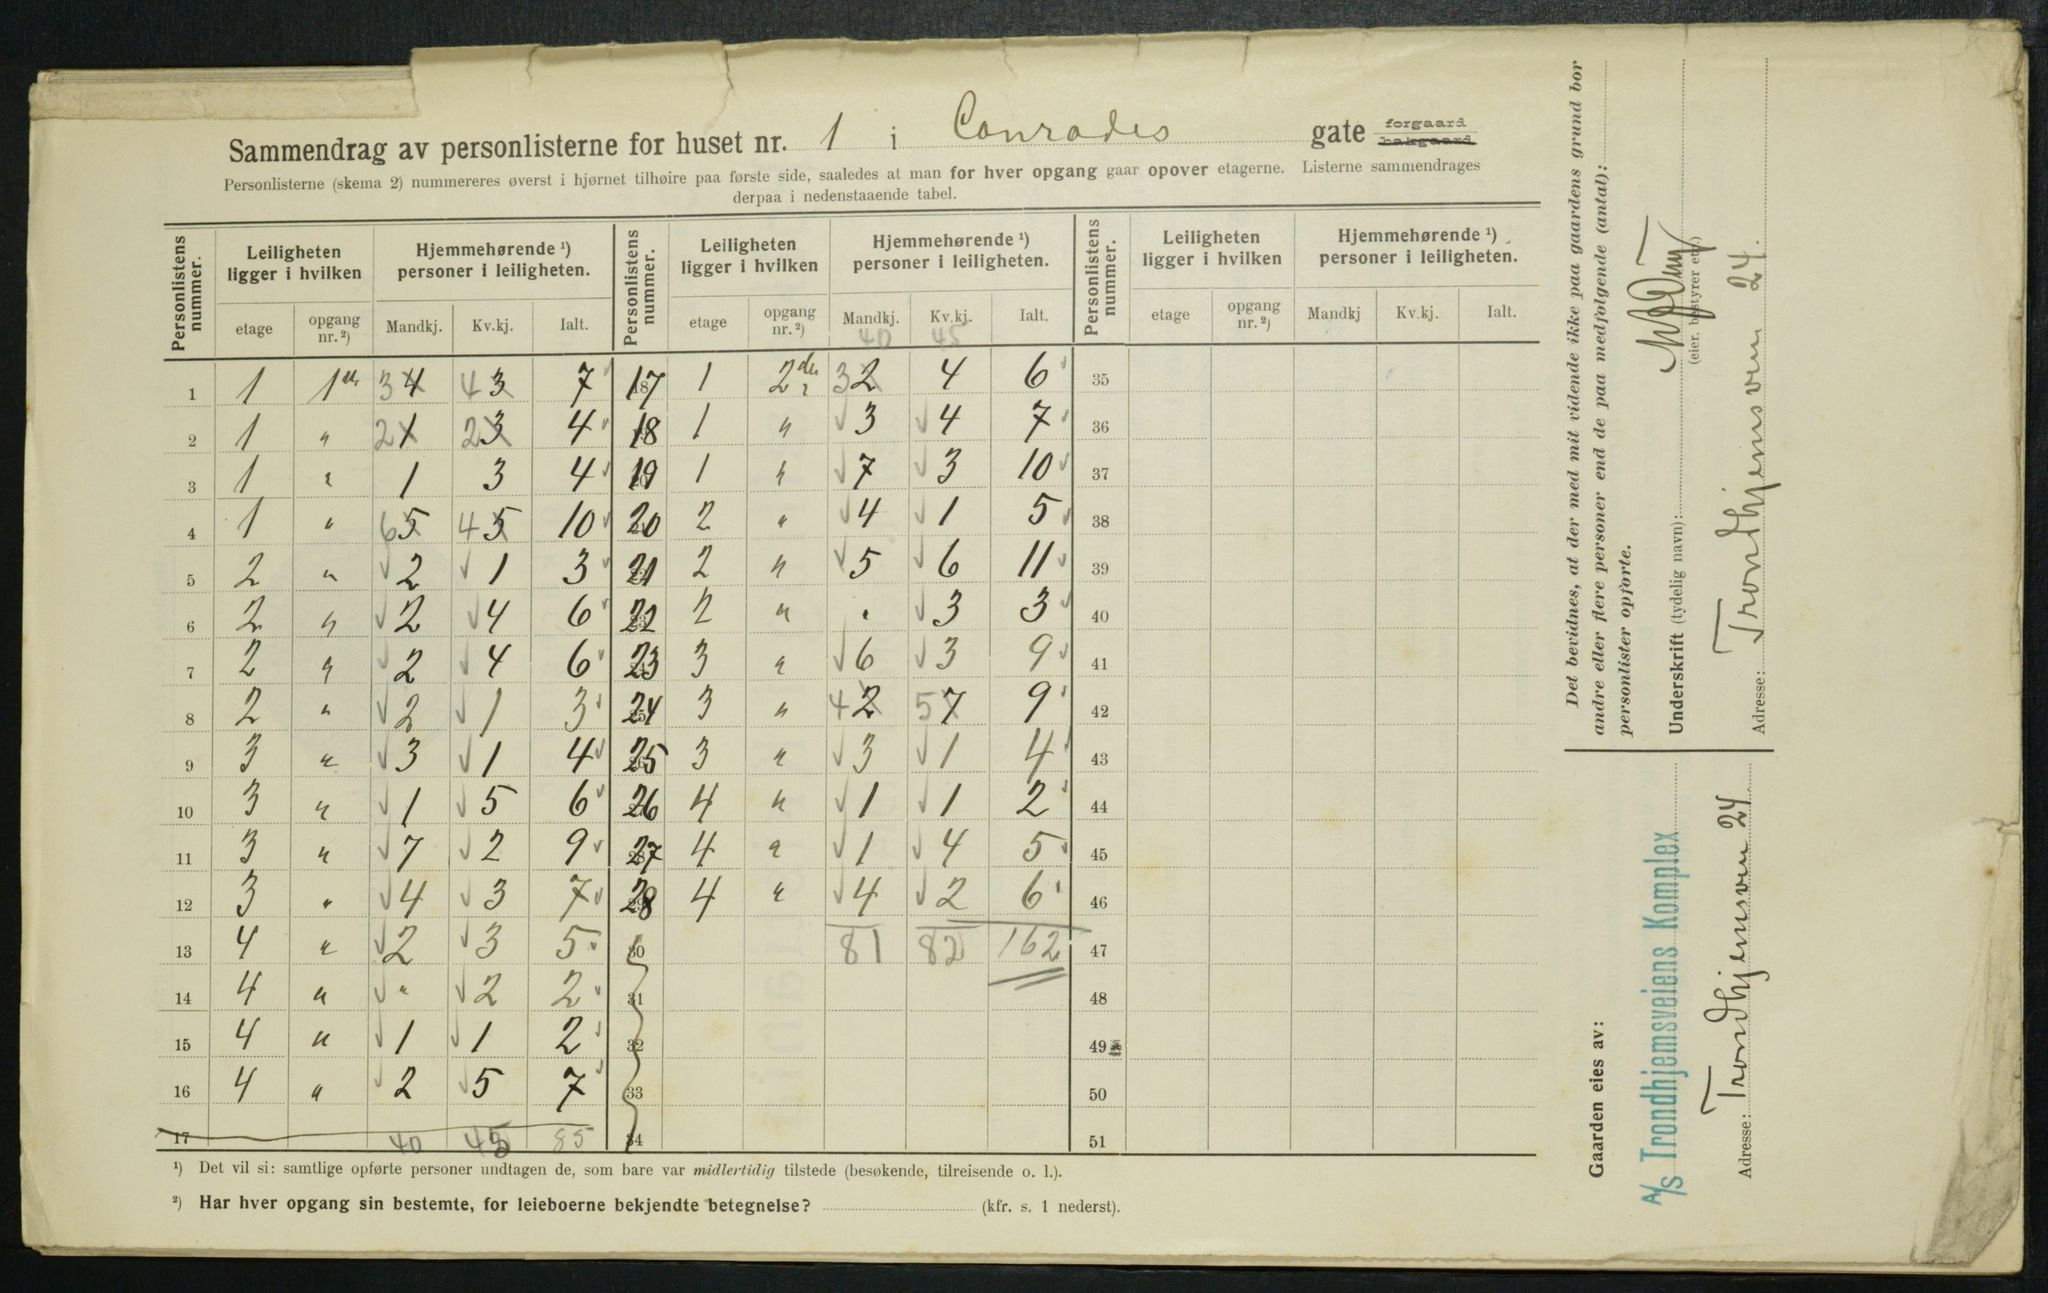 Sammendrag av personlisterne for huset nr. 1 i Conrades gate forgaard bakgaard
Personlisterne (skema 2) nummereres øverst i hjørnet tilhøire paa første side, saaledes at man for hver opgang gaar opover etagerne. Listerne sammendrages
derpaa i nedenstaaende tabel.
Personlistens nummer. Leiligheten ligger i hvilken Hjemmehørende ¹) personer i leiligheten. Personlistens nummer. Leiligheten ligger i hvilken Hjemmehørende ¹) personer i leiligheten. Personlistens nummer. Leiligheten ligger i hvilken Hjemmehørende ¹) personer i leiligheten.
etage opgang nr. ²) Mandkj. Kv.kj. Ialt. etage opgang nr. ²) Mandkj. Kv.kj. Ialt. etage opgang nr. ²) Mandkj Kv.kj. Ialt.
40 45
1 1 1 34 43 7 17 1 2 32 4 6 35
2 1 " 21 23 4 18 1 " 3 4 7 36
3 1 " 1 3 4 19 1 " 7 3 10 37
4 1 " 65 45 10 20 2 " 4 1 5 38
5 2 " 2 1 3 21 2 " 5 6 11 39
6 2 " 2 4 6 22 2 " " 3 3 40
7 2 " 2 4 6 23 3 " 6 3 9 41
8 2 " 2 1 3 24 3 " 42 57 9 42
9 3 " 3 1 4 25 3 " 3 1 4 43
10 3 " 1 5 6 26 4 " 1 1 2 44
11 3 " 7 2 9 27 4 " 1 4 5 45
12 3 " 4 3 7 28 4 " 4 2 6 46
13 4 " 2 3 5 30 81 82 162 47
14 4 " " 2 2 31 48
15 4 " 1 1 2 32 49
16 4 " 2 5 7 33 50
17 40 45 85 34 51
¹) Det vil si: samtlige opførte personer undtagen de, som bare var midlertidig tilstede (besøkende, tilreisende o. l.).
²) Har hver opgang sin bestemte, for leieboerne bekjendte betegnelse? (kfr. s. 1 nederst).
Det bevidnes, at der med mit vidende ikke paa gaardens grund bor
andre eller flere personer end de paa medfølgende (antal):
personlister opførte.
Underskrift (tydelig navn):
(eier, bestyrer etc.)
Adresse: Trondhjemsveien 24.
Gaarden eies av:
A/S Trondhjemsveiens Komplex
Adresse: Trondhjemsveien 24